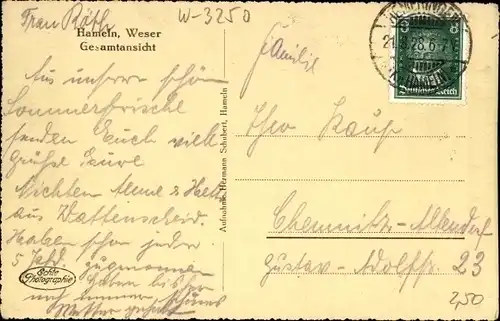 Frau Röth
W-3250
Hameln, Weser
Gesamtansicht
Aus unserer schön
Sommerfrische
senden Euch viel
Grüße Eure
Nichten
aus Wattenscheid.
Haben schon jeder
5 Pfd. zugenommen
haben bis
noch immer schönes
Wetter gehabt
Echte
Photographie
Aufnahme Hermann Schubert, Hameln
Familie
Theo Kaup
Chemnitz-Altendorf
Gustav-Adolfstr. 23
8 8
Deutsches Reich
2,50